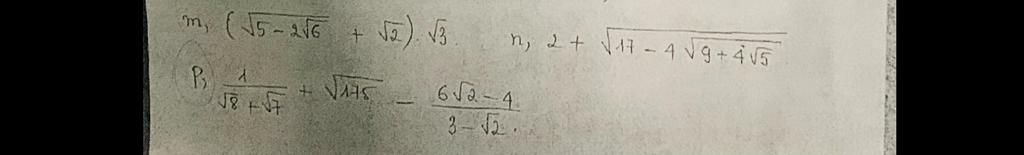 m, (√(5 - 2√6) + √2) . √3. n, 2 + √(17 - 4√(9 + 4√5))
P, 1/(√8 + √7) + √175 - (6√2 - 4)/(3 - √2).